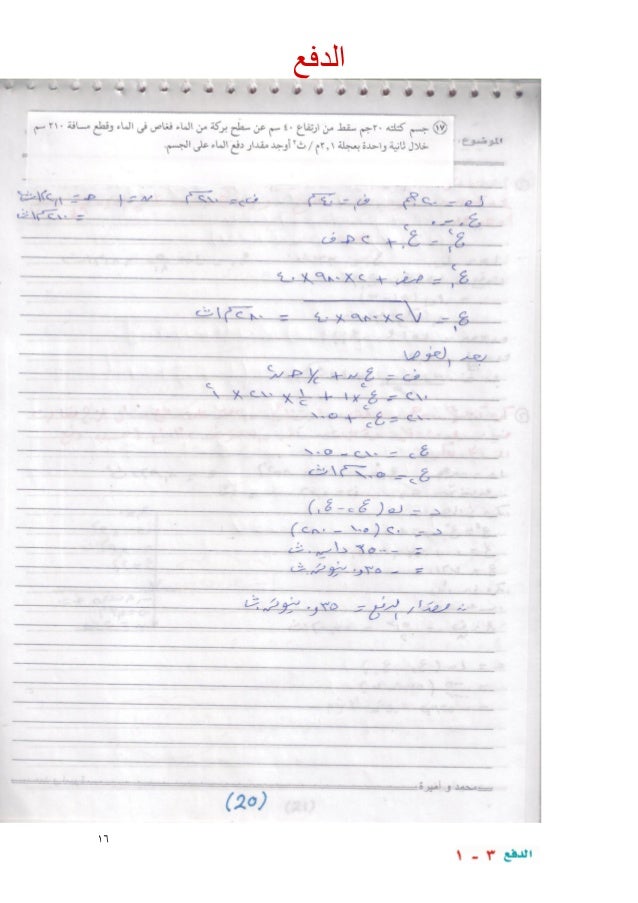 الدفع
الموضوع:
١٧ جسم كتلته ٢٠جم سقط من ارتفاع ٤٠ سم عن سطح بركة من الماء فغاص فى الماء وقطع مسافة ٢١٠ سم
خلال ثانية واحدة بعجلة ٢,١م / ث٢ أوجد مقدار دفع الماء على الجسم.
ك = ٢٠جم ف = ٤٠سم ف٢ = ٢١٠سم ن = ١ حـ = ٢,١م/ث٢
= ٢١٠سم/ث٢
ع. = ٠
ع١٢ = ع.٢ + ٢ حـ ف
ع١٢ = صفر + ٢ × ٩٨٠ × ٤٠
ع١ = √٢×٩٨٠×٤٠ = ٢٨٠سم/ث
بعد الغوص
ف = ع٢ ن + ١/٢ حـ ن٢
٢١٠ = ع٢ × ١ + ١/٢ × ٢١٠ × ١
٢١٠ = ع٢ + ١٠٥
ع٢ = ٢١٠ - ١٠٥
ع٢ = ١٠٥ سم/ث
د = ك (ع٢ - ع١)
د = ٢٠ (١٠٥ - ٢٨٠)
= -٣٥٠٠ داين.ث
= -٠٣٥و. نيوتن.ث
∴ مقدار الدفع = ٠٣٥و. نيوتن.ث
محمد و أميرة
(20)
١٦
الدفع ٣ - ١